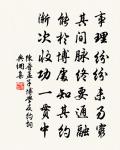 事理纷纷未易穷
其间脉络要通融
能于博处知其约
渐次收功一贯中
陈普孟子博学反约词
典搠集